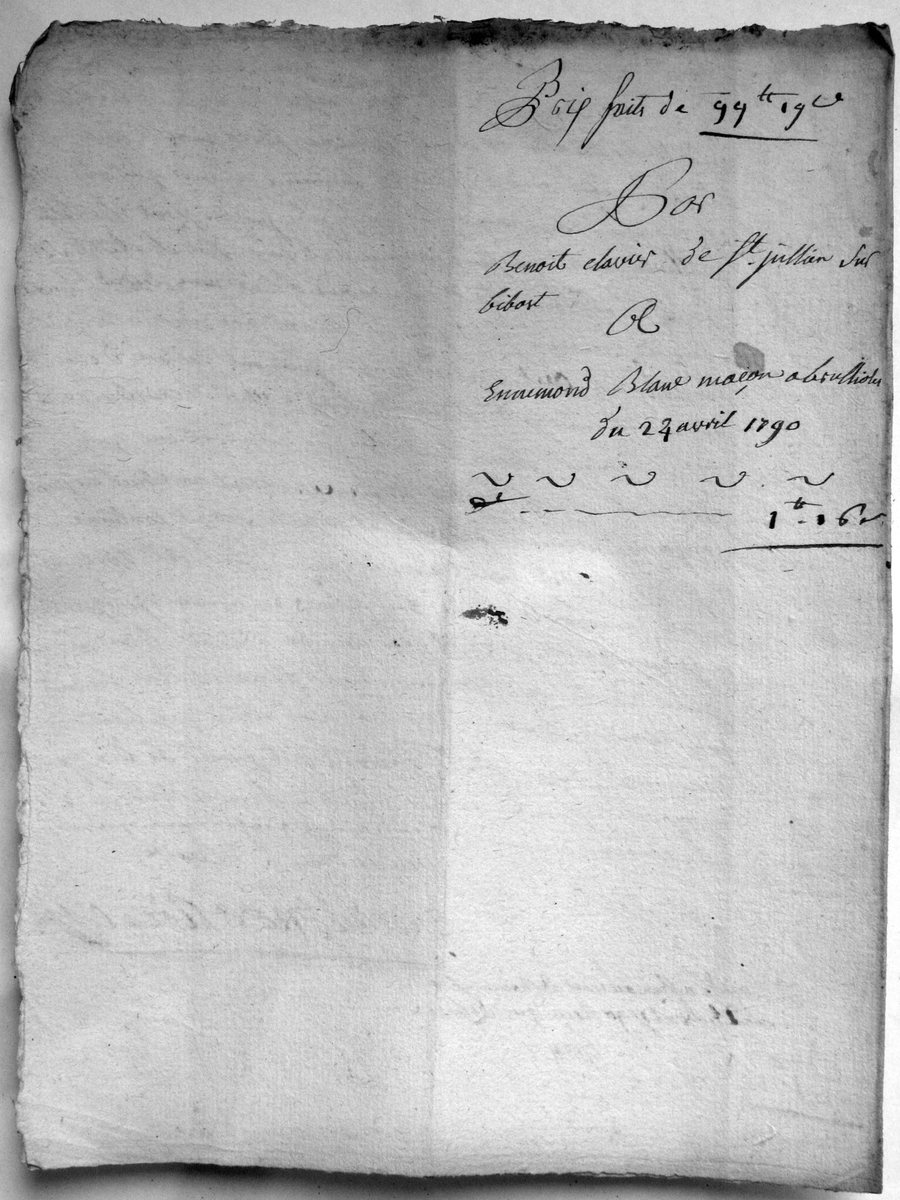 Prix faits de 99tt 19s
Par
Benoit clavier de St jullien sur
bibost
A
Ennemond Blanc maçon a brullioles
du 24 avril 1790
1tt 16s